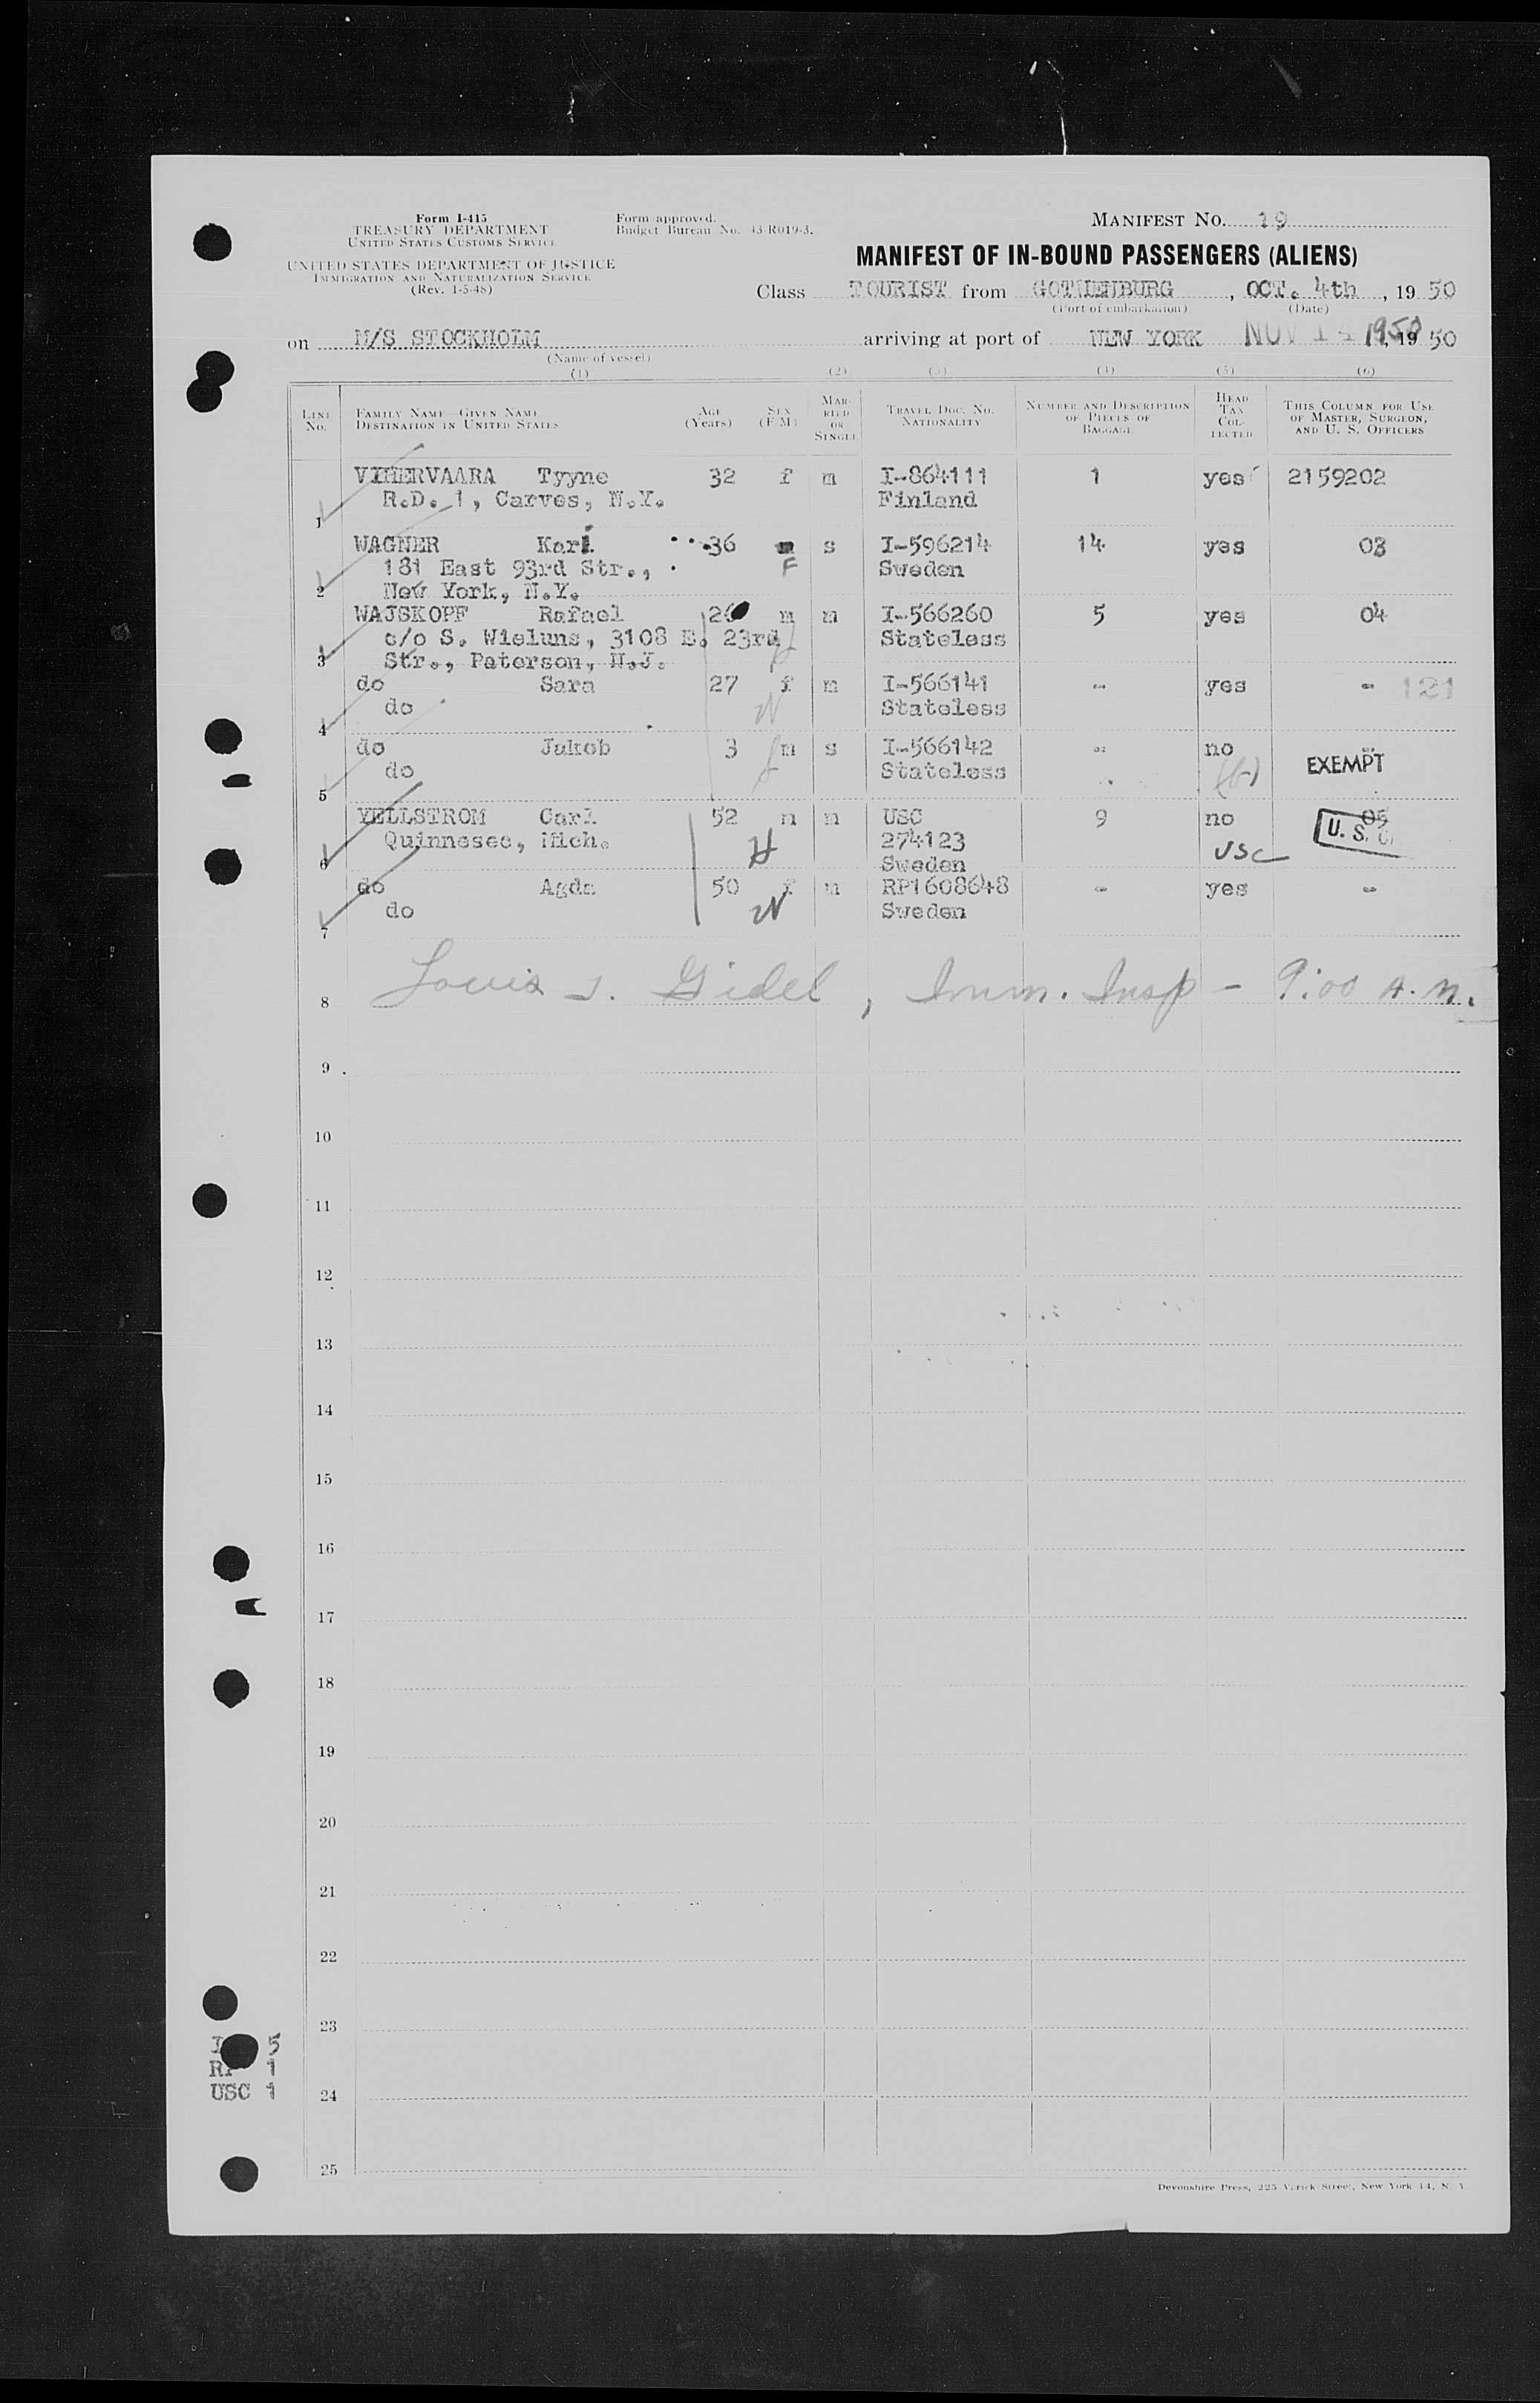 Form I-415
TREASURY DEPARTMENT
UNITED STATES CUSTOMS SERVICE
UNITED STATES DEPARTMENT OF JUSTICE
IMMIGRATION AND NATURALIZATION SERVICE
(Rev. 1-5-48)
Form approved.
Budget Bureau No. 43-R019-3.
MANIFEST NO. 19
MANIFEST OF IN-BOUND PASSENGERS (ALIENS)
Class TOURIST from GOTHENBURG, OCT. 4th, 19 50
(Port of embarkation) (Date)
on M/S STOCKHOLM arriving at port of NEW YORK NOV 14 1950, 19 50
(Name of vessel)
(1) (2) (3) (4) (5) (6)
LINE NO. FAMILY NAME—GIVEN NAME DESTINATION IN UNITED STATES AGE (Years) SEX (F M) MARRIED OR SINGLE TRAVEL DOC. NO. NATIONALITY NUMBER AND DESCRIPTION OF PIECES OF BAGGAGE HEAD TAX COLLECTED THIS COLUMN FOR USE OF MASTER, SURGEON, AND U. S. OFFICERS
VIHERVAARA Tyyne 32 f m I-864111 1 yes 2159202
R.D. 1, Carves, N.Y. Finland
1
WAGNER Kari 36 m s I-596214 14 yes 03
181 East 93rd Str., F Sweden
2 New York, N.Y.
WAJSKOPF Rafael 26 m m I-566260 5 yes 04
c/o S. Wieluns, 3108 E. 23rd Stateless
3 Str., Paterson, N.J.
do Sara 27 f m I-566141 - yes - 121
do W Stateless
4
do Jakob 3 m s I-566142 - no -
do Stateless EXEMPT
5
YELLSTROM Carl 52 m m USC 9 no 05
Quinnesec, Mich. H 274123 USC U. S. C.
6 Sweden
do Agda 50 f m RP1608648 - yes -
do W Sweden
7
8 Louis J. Gidel, Imm. Insp - 9:00 A.M.
9
10
11
12
13
14
15
16
17
18
19
20
21
22
23
I 5
RP 1
USC 1
24
25
Devonshire Press, 225 Varick Street, New York 14, N. Y.